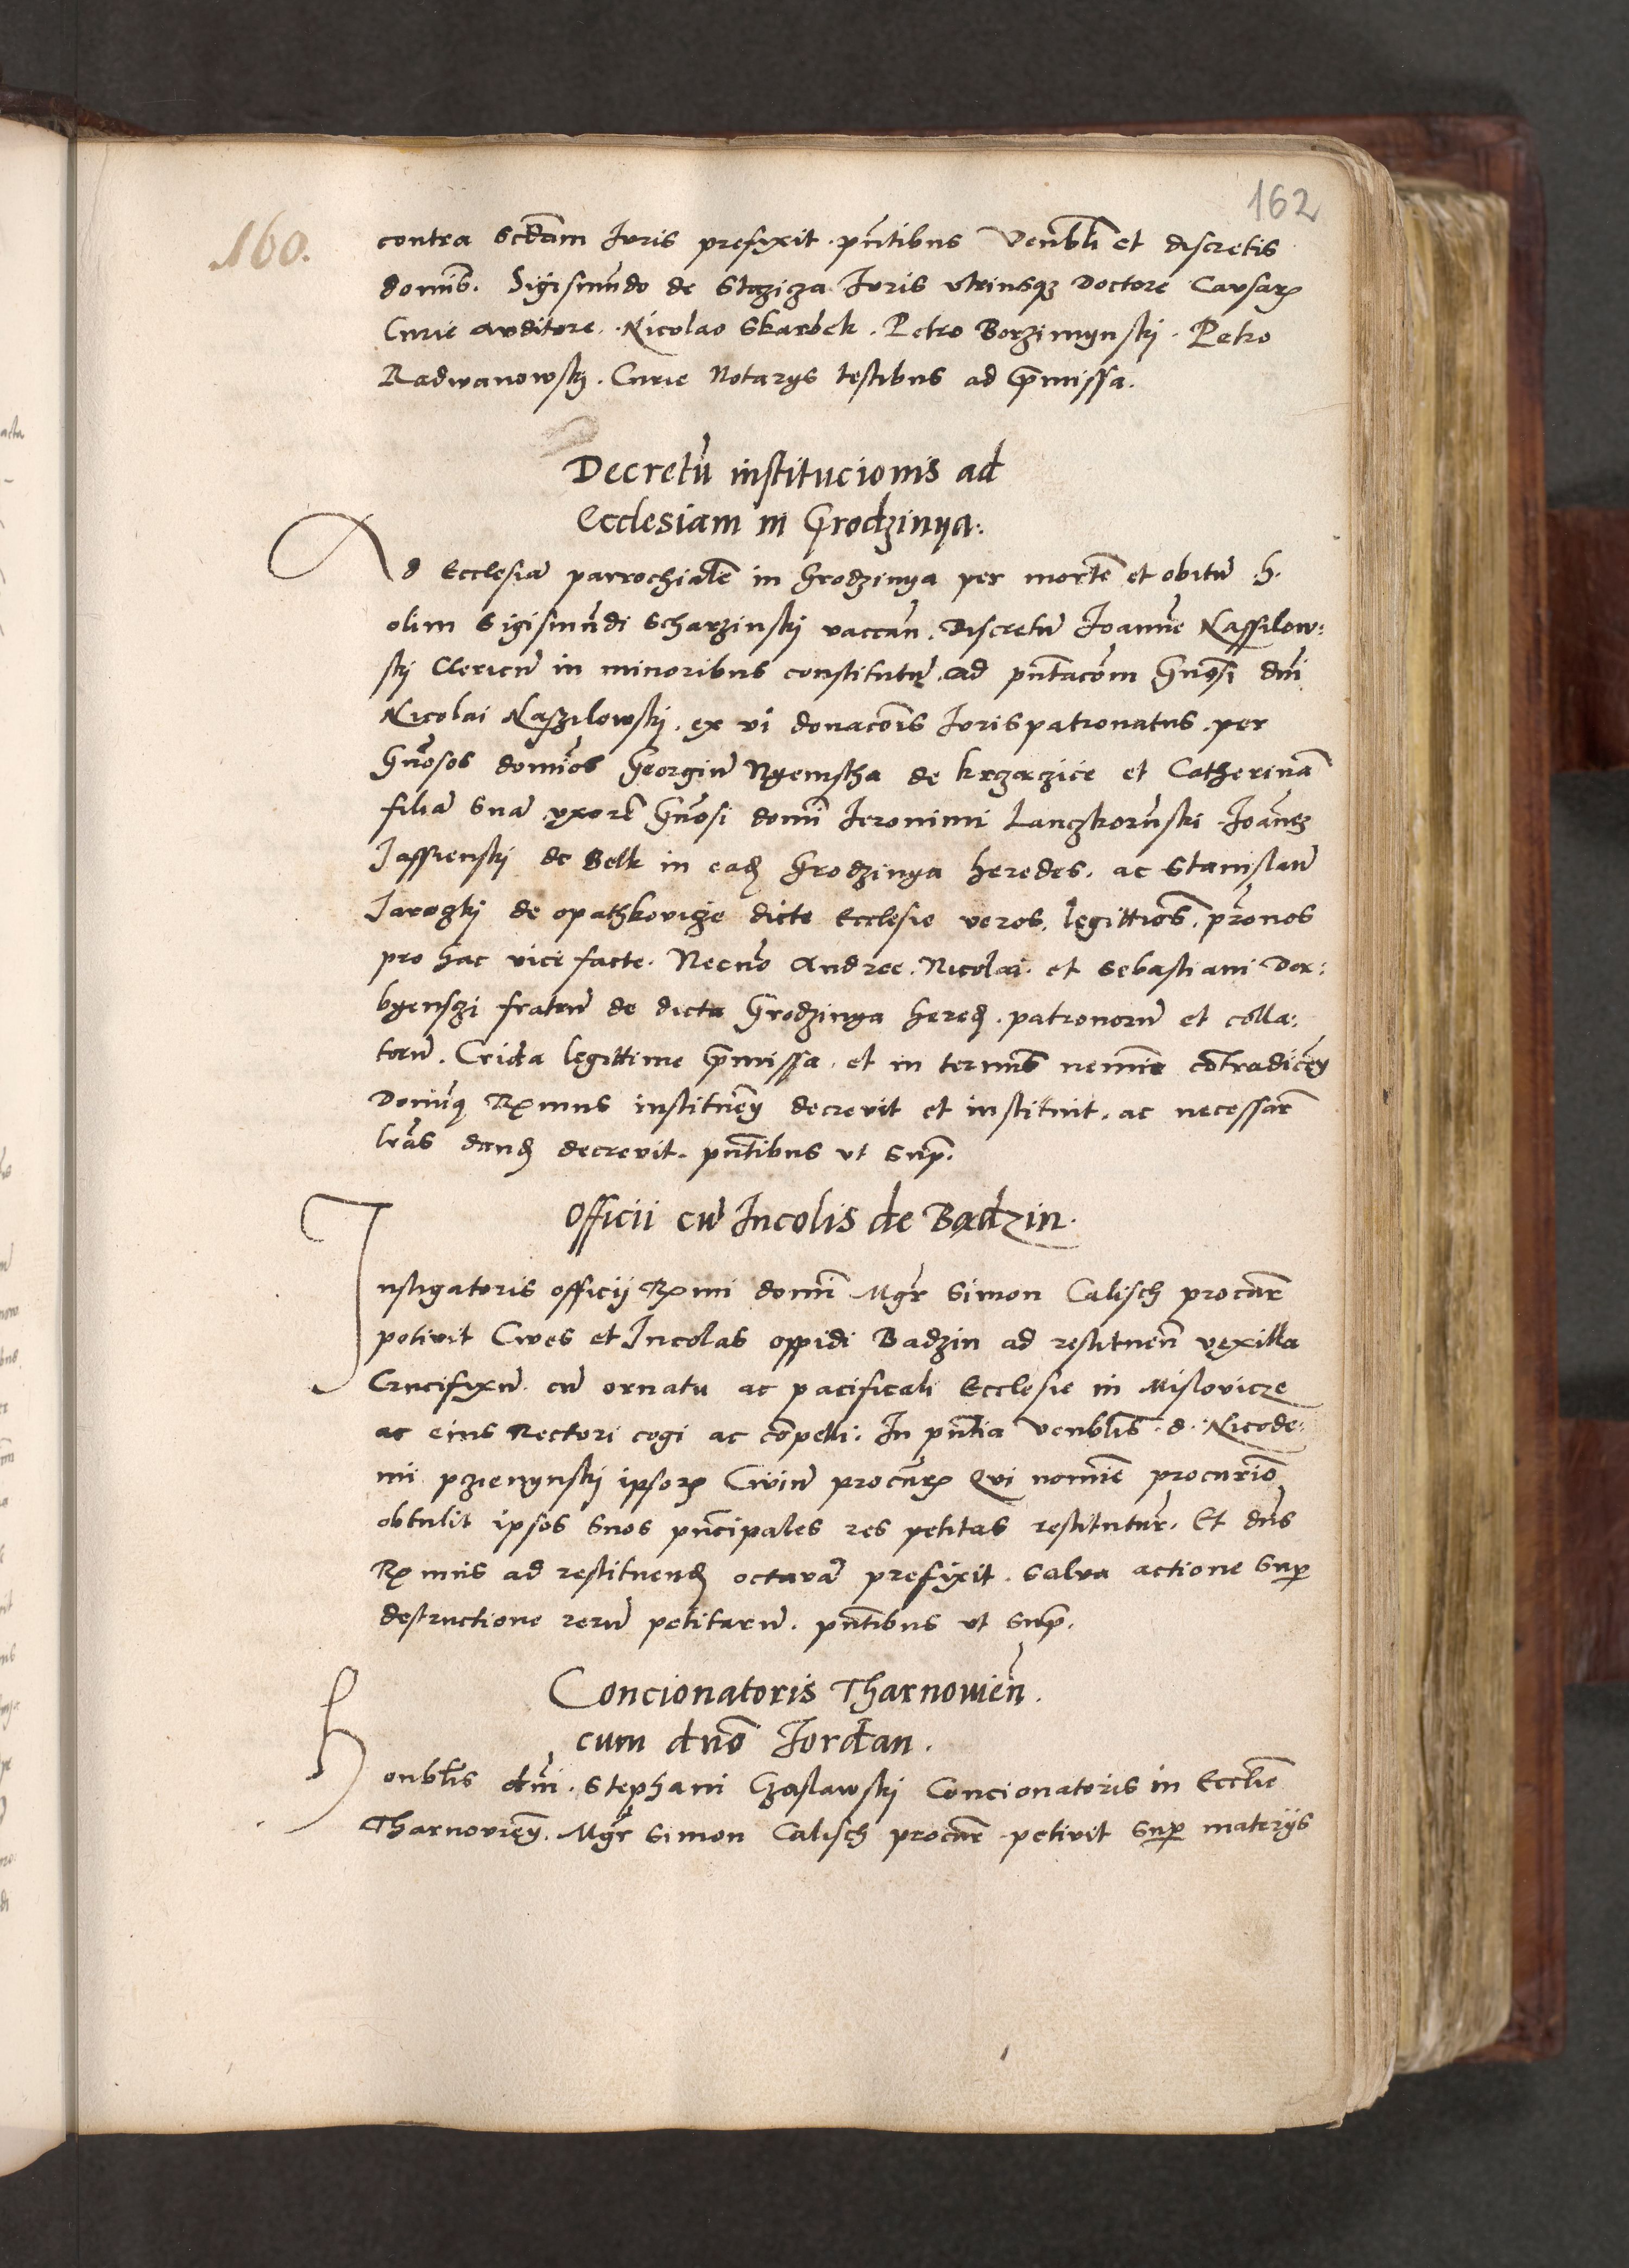 162
160.
contra scdam Juris prefixit. pntibus Venbli et discretis
domis. Sigismundo de Stezicza Juris vtriusqz Doctore Causarz
Curie auditore. Nicolao Skarbek. Petro Borzimynski. Petro
Radwanowskj. Curie Notarys testibus ad pmissa.
Decretu institucionis ad
Ecclesiam in Grodzinya.
Ad Ecclesia parrochiale in Grodzinya per morte et obitu h.
olim Sigismundi Scharzinskj vaccan. Discretu Joanne Nassilow:
skj Clericu in minoribus constitutu. ad pntacom Gnosi dni
Nicolai Naszilowskj. ex vi donacois Jurispatronatus. per
Gnosos domios Georgiu Nyemstha de krzczicze et Catherina
filia sua vxore Gnosi domi Jeronimi Lanczkorunski. Joanes
Jassienskj de Belk in ead Grodzinya heredes. ac Stanislau
Jaroczkj de opathkovicze dicte Ecclesie veros. legittios. pronos
pro hac vice facte. Necno Andree. Nicolai. et Sebastiani Dor:
byenszi fratru de dicta Grodzinya hered. patronoru et colla:
toru. Crida legittime pmissa. et in termis nemie contradicen
Domiq Rmus instituen decrevit et instituit. ac necessar
lras dand decrevit. pntibus vt sup.
Officii cu Incolis de Badzin.
Instigatoris officij Rmi domi Mgr Simon Calisch procur
petivit Cives et Incolas oppidi Badzin ad restituen vexilla
Crucifixu. cu ornatu ac pacificali Ecclesie in Mislovicze
ac eius Rectori cogi ac compelli. In pntia Venblis. d. Nicode:
mi pzienynskj ipsorz Civiu procurz Qui nomie procurio
obtulit ipsos suos pncipales res petitas restitutur. Et dns
Rmus ad restituend octava prefixit. salva actione sup
destructione reru petitaru. pntibus vt sup.
Concionatoris Tharnovien.
cum dno Jordan.
Honblis dni. Stephani Czaslawskj Concionatoris in Ecclie
Tharnovien. Mgr Simon Calisch procur petivit sup materijs